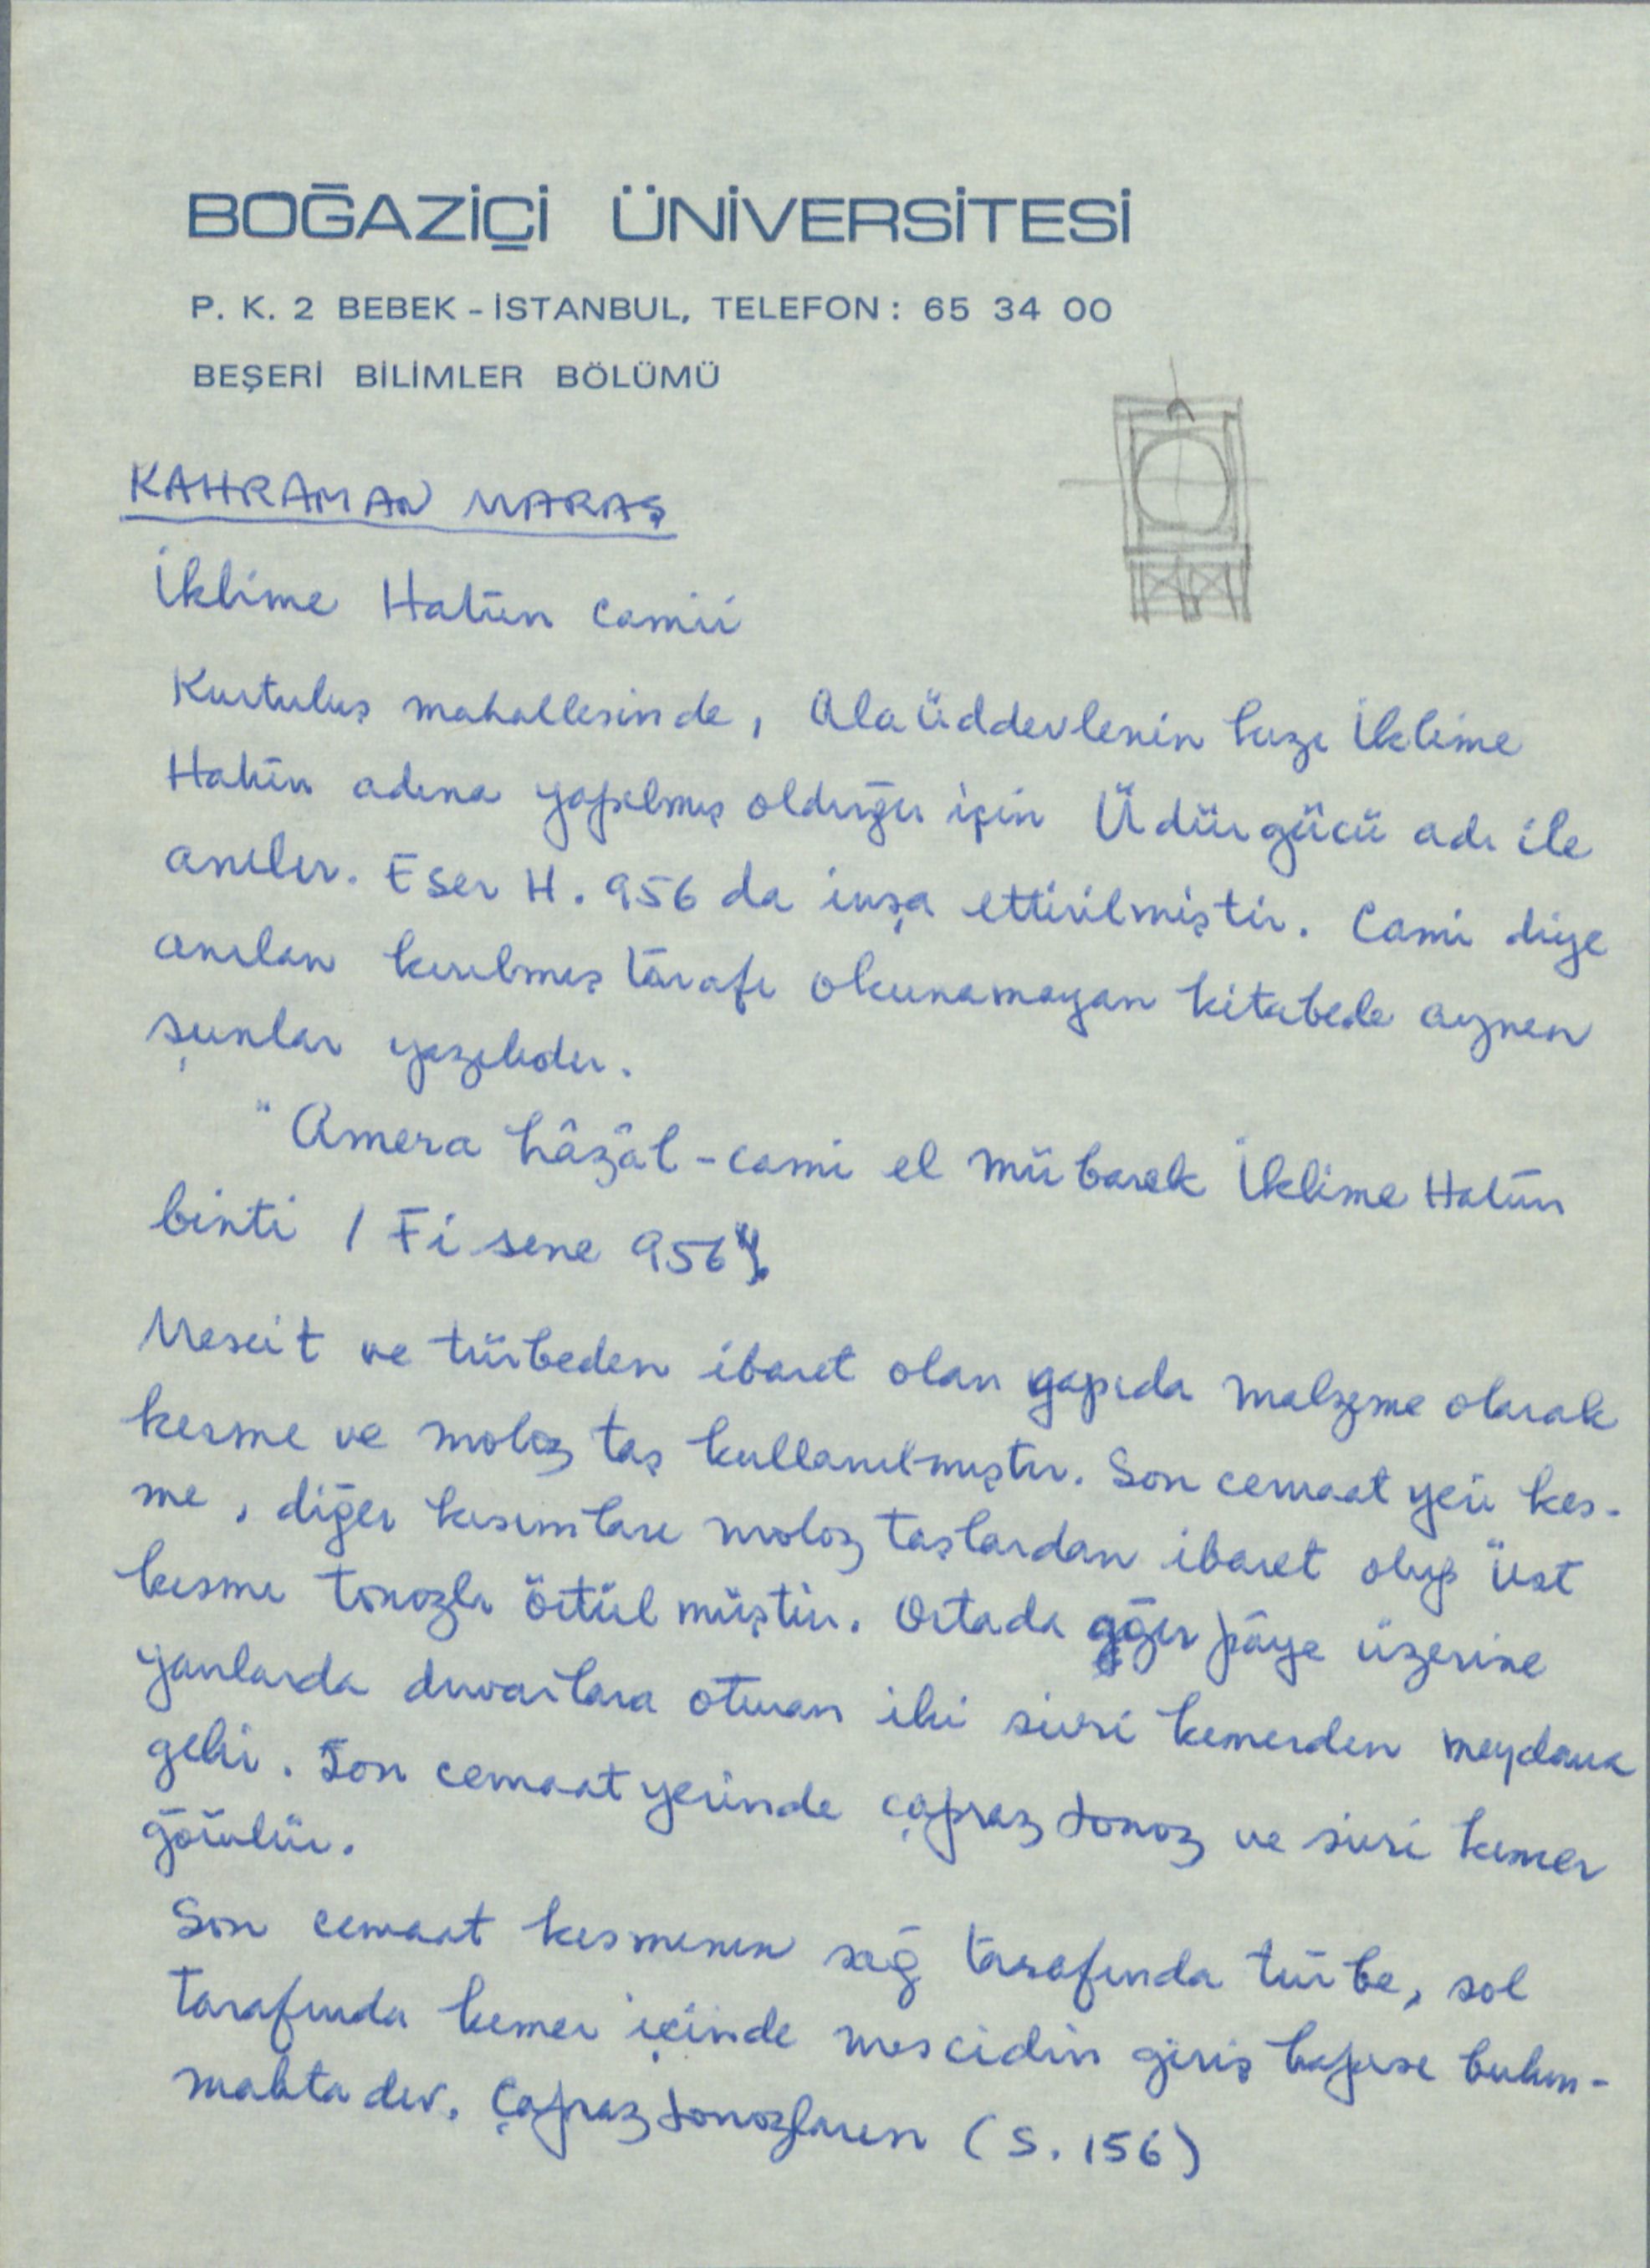 BOĞAZİÇİ ÜNİVERSİTESİ
P. K. 2 BEBEK - İSTANBUL, TELEFON : 65 34 00
BEŞERİ BİLİMLER BÖLÜMÜ
KAHRAMAN MARAŞ
İklime Hatün camii
Kurtuluş mahallesinde, Alaüddevlenin kızı İklime
Hatün adına yapılmış olduğu için Üdürgücü adı ile
anılır. Eser H. 956 da inşa ettirilmiştir. Cami diye
anılan kırılmış tarafı okunamayan kitabede aynen
şunlar yazılıdır.
"Amera hâzâl-cami el mübarek İklime Hatün
binti / Fi sene 956"
Mescit ve türbeden ibaret olan yapıda malzeme olarak
kesme ve moloz taş kullanılmıştır. Son cemaat yeri kes-
me, diğer kısımları moloz taşlardan ibaret olup üst
kısmı tonozla örtülmüştür. Ortada paye üzerine
yanlarda duvarlara oturan iki sivri kemerden meydana
gelir. Son cemaat yerinde çapraz tonoz ve sivri kemer
görülür.
Son cemaat kısmının sağ tarafında türbe, sol
tarafında kemer içinde mescidin giriş kapısı bulun-
maktadır. Çapraz tonozların (S. 156)